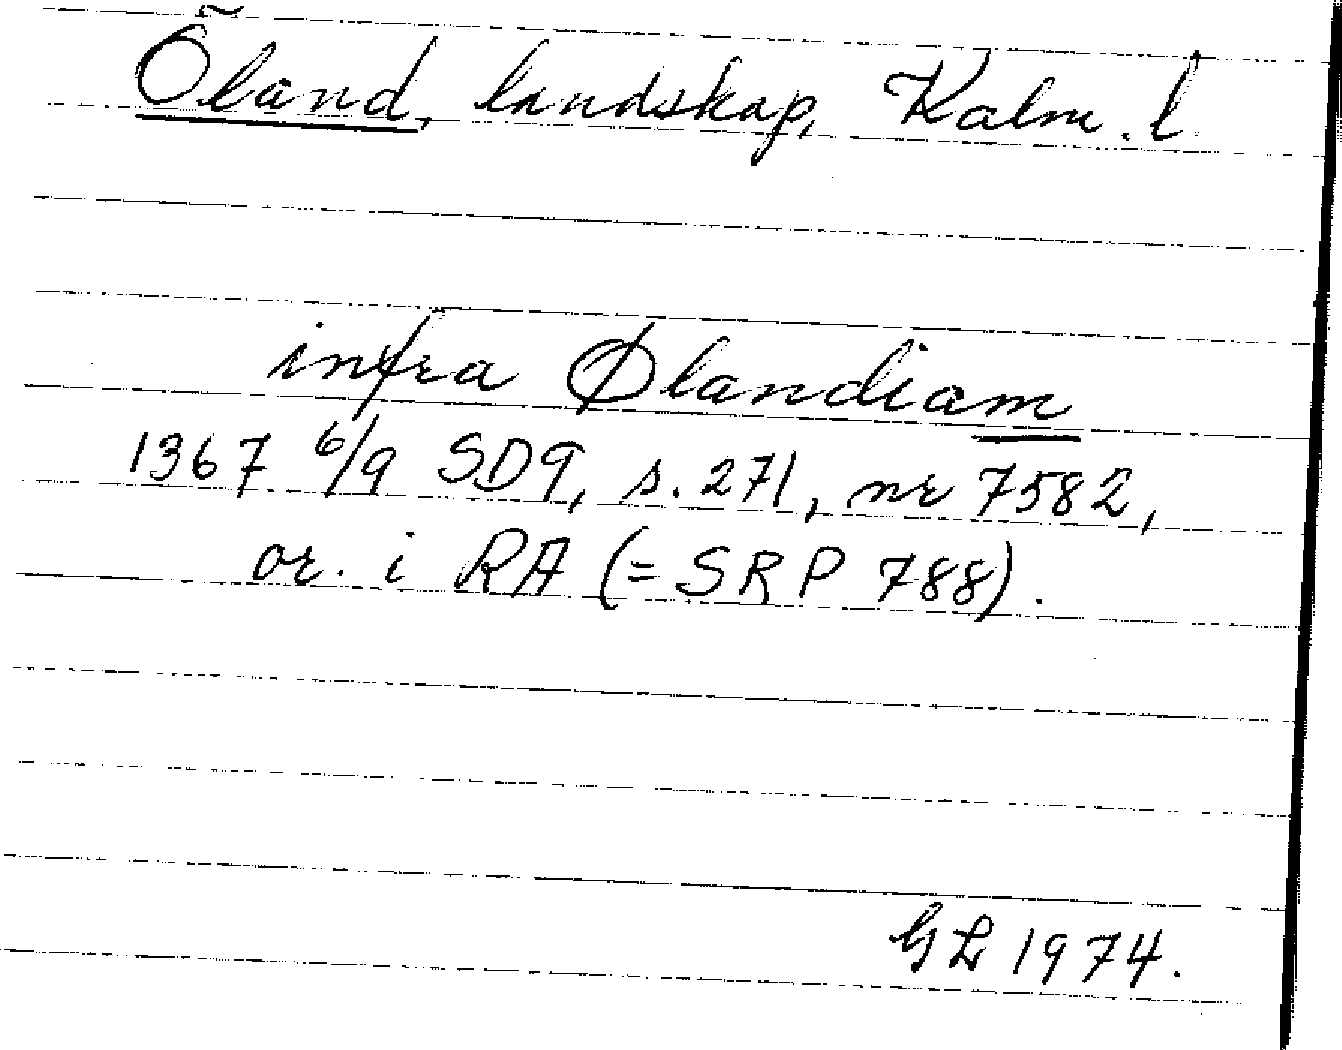 Öland, landskap, Kalm. l
infra Ølandiam
1367 6/9 SD9, s. 271, nr 7582,
or. i RA (= SRP 788).
GL 1974.